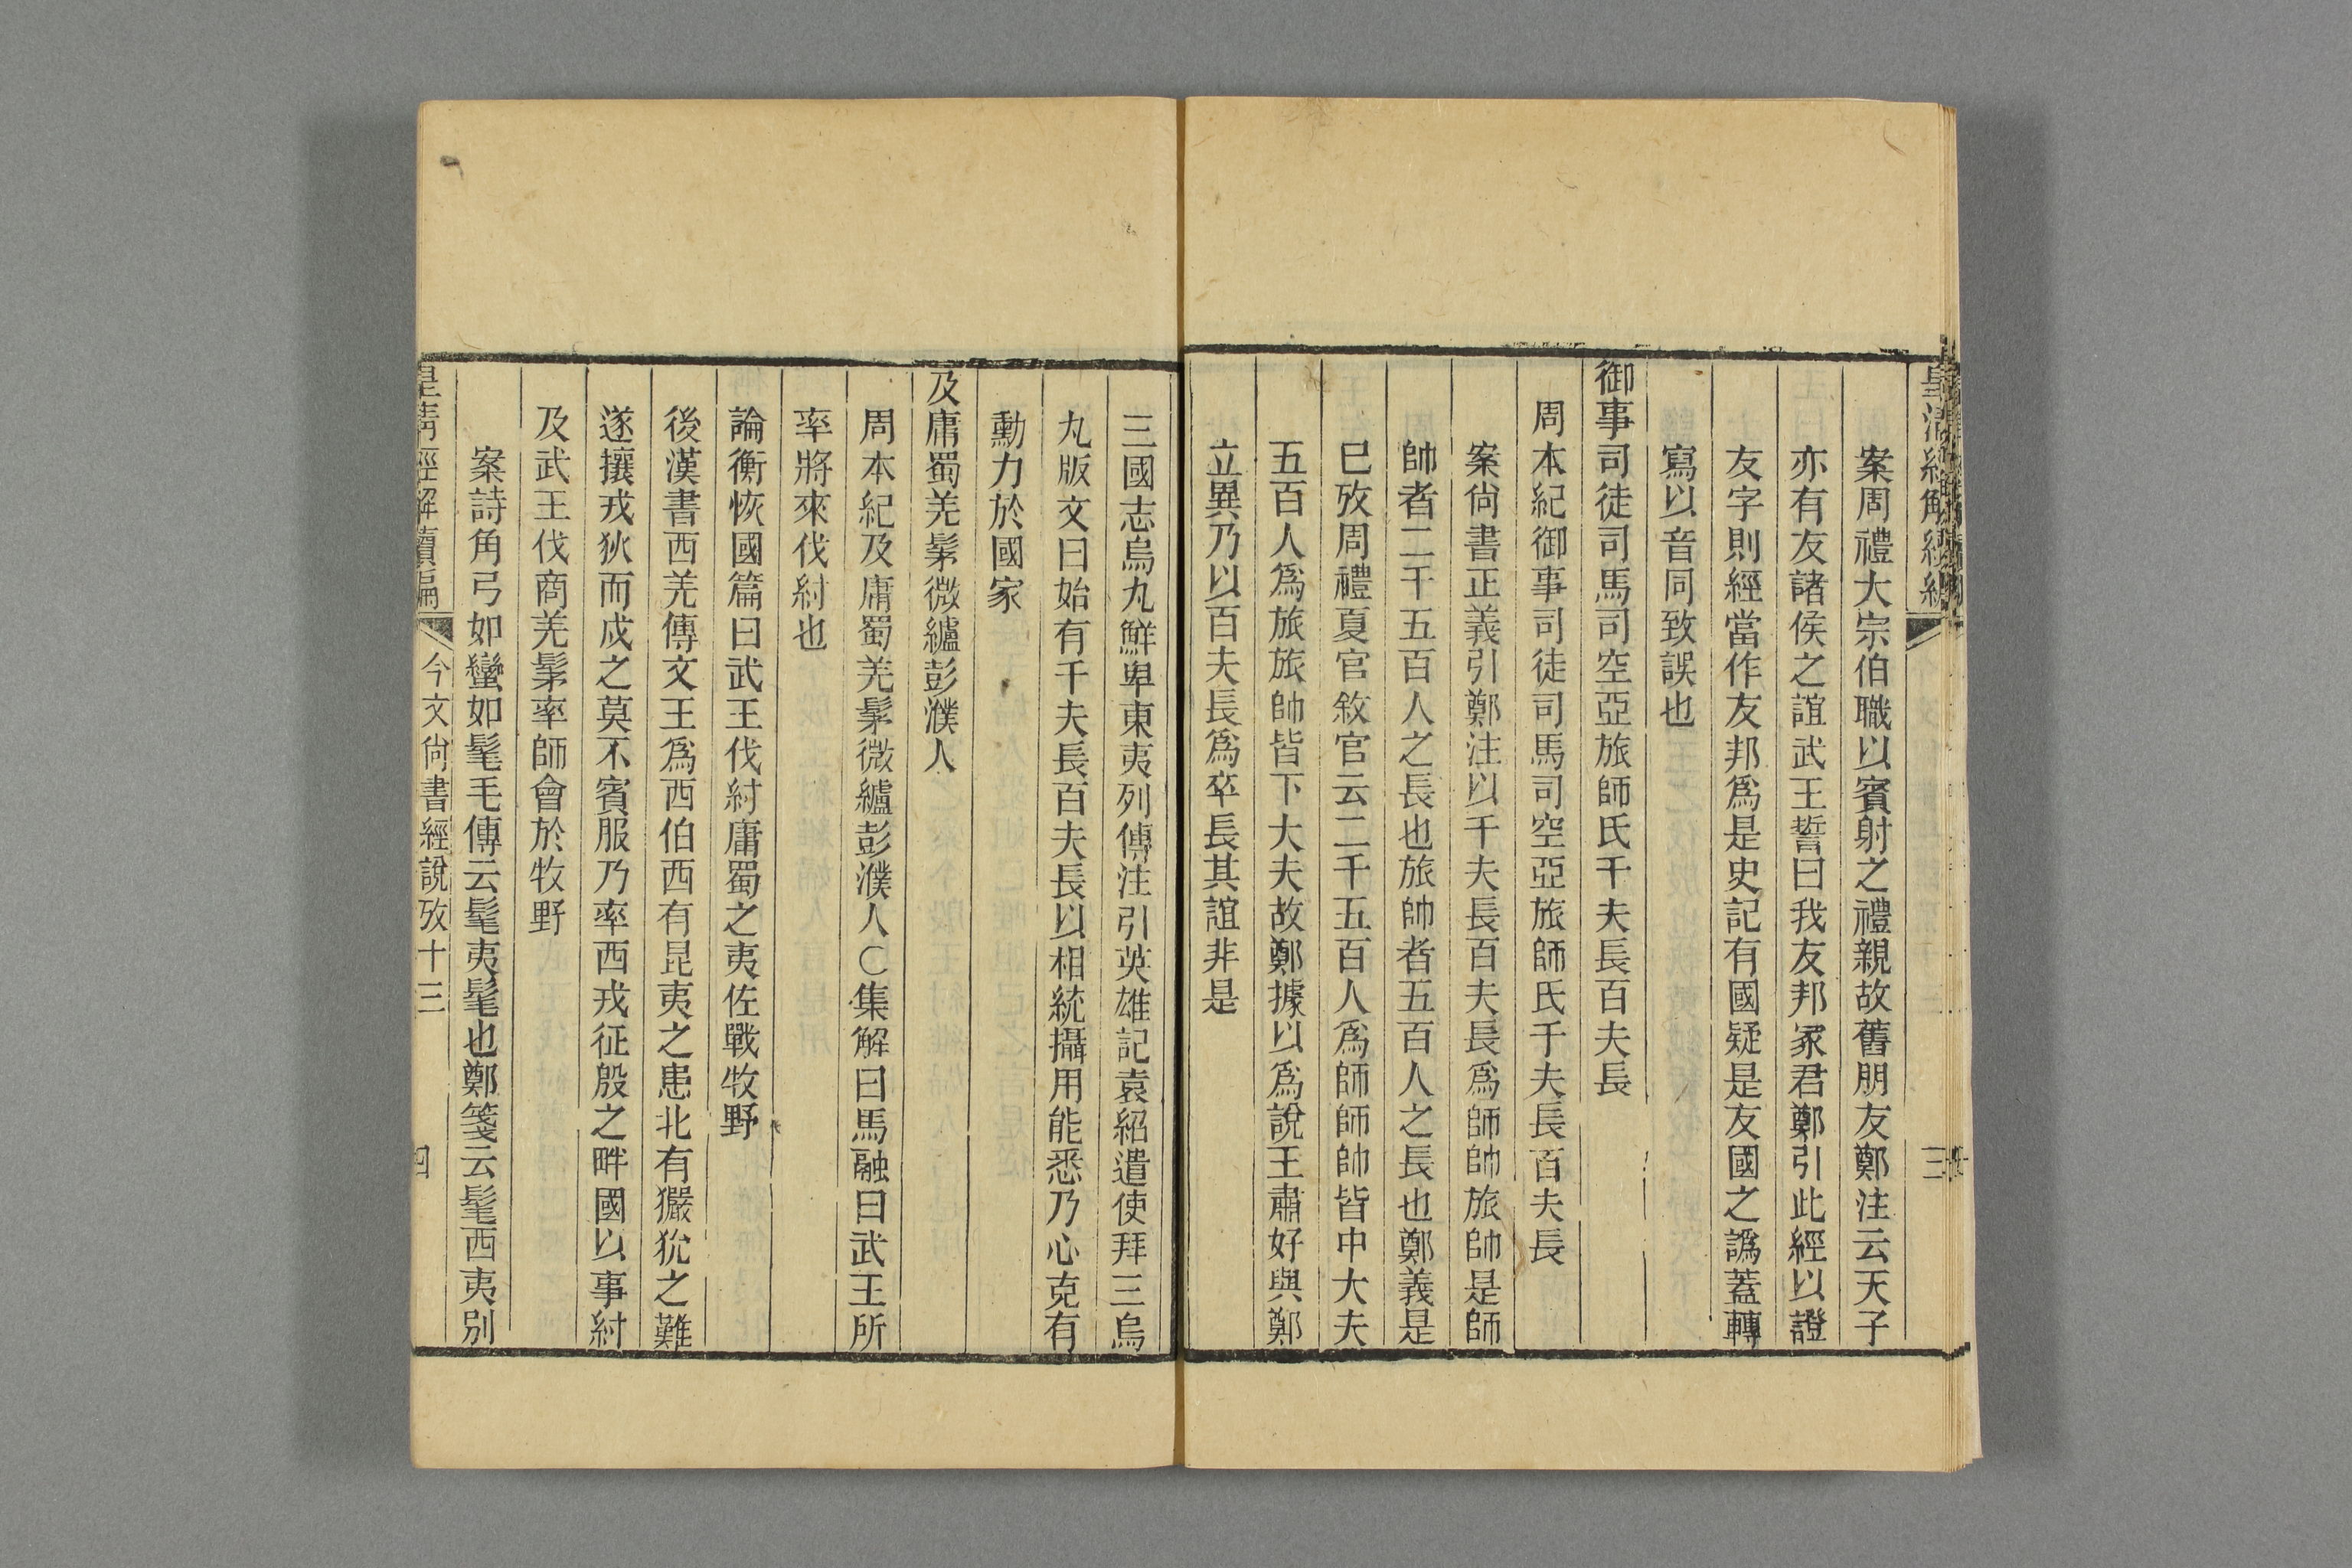 案周禮大宗伯職以賓射之禮親故舊朋友鄭注云天子
亦有友諸侯之誼武王誓曰我友邦冢君鄭引此經以證
友字則經當作友邦爲是史記有國疑是友國之譌蓋轉
寫以音同致誤也
御事司徒司馬司空亞旅師氏千夫長百夫長
周本紀御事司徒司馬司空亞旅師氏千夫長百夫長
案尙書正義引鄭注以千夫長百夫長爲師帥旅帥是師
帥者二千五百人之長也旅帥者五百人之長也鄭義是
巳攷周禮夏官敘官云二千五百人爲師師帥皆中大夫
五百人爲旅旅帥皆下大夫故鄭據以爲說王肅好與鄭
立異乃以百夫長爲卒長其誼非是
三國志烏丸鮮卑東夷列傳注引英雄記袁紹遣使拜三烏
丸版文曰始有千夫長百夫長以相統攝用能悉乃心克有
勳力於國家
及庸蜀羌髳微纑彭濮人
周本紀及庸蜀羌髳微纑彭濮人○集解曰馬融曰武王所
率將來伐紂也
論衡恢國篇曰武王伐紂庸蜀之夷佐戰牧野
後漢書西羌傳文王爲西伯西有昆夷之患北有獫狁之難
遂攘戎狄而戍之莫不賓服乃率西戎征殷之畔國以事紂
及武王伐商羌髳率師會於牧野
案詩角弓如蠻如髦毛傳云髦夷髦也鄭箋云髦西夷別
皇清經解續編
今文尙書經說攷十三
四